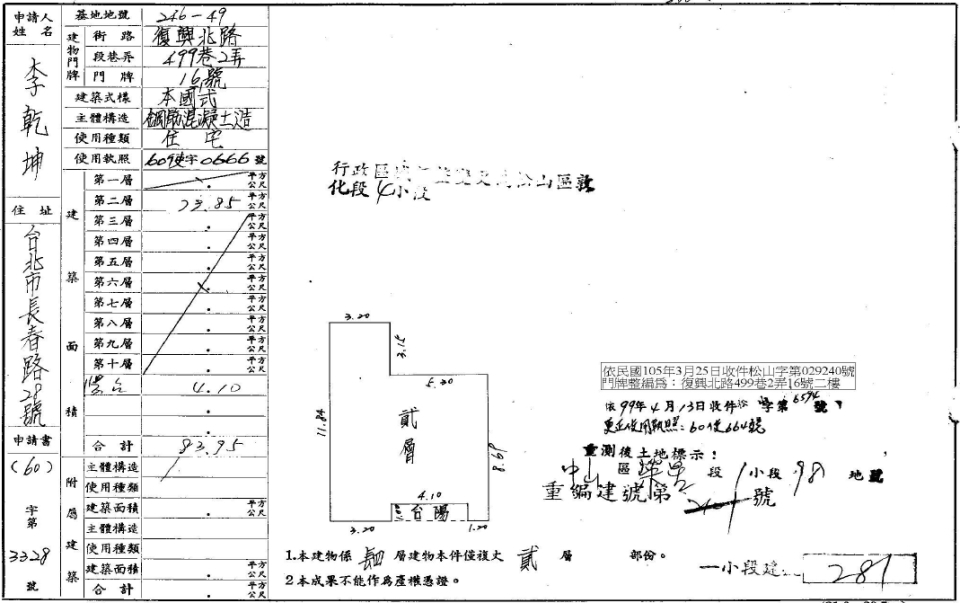 申請人姓名
李乾坤
住址
台北市長春路28號
申請書
(60)
字第
3328
號
基地地號 246-49
建物門牌
街路 復興北路
段巷弄 499巷2弄
門牌 16號
建築式樣 本國式
主體構造 鋼筋混凝土造
使用種類 住宅
使用執照 60使字0666號
建築面積
第一層 平方公尺
第二層 73.85 平方公尺
第三層 平方公尺
第四層 平方公尺
第五層 平方公尺
第六層 平方公尺
第七層 平方公尺
第八層 平方公尺
第九層 平方公尺
第十層 平方公尺
4.10
合計
附屬建築
主體構造
使用種類
建築面積 平方公尺
主體構造
使用種類
建築面積 平方公尺
合計 平方公尺
行政區 變更為松山區敦
化段4小段
3.20
3.15
5.20
11.84
貳層
8.69
4.10
台陽
3.20
1.20
依民國105年3月25日收件松山字第029240號
門牌整編為：復興北路499巷2弄16號二樓
依99年4月13日收件 字第6594號
更正使用執照：60使664號
重測後土地標示：
中山區 段1小段98地號
重編建號第 號
1.本建物係 層建物本件僅複丈貳層部份。
2本成果不能作為產權憑證。
一小段建 281